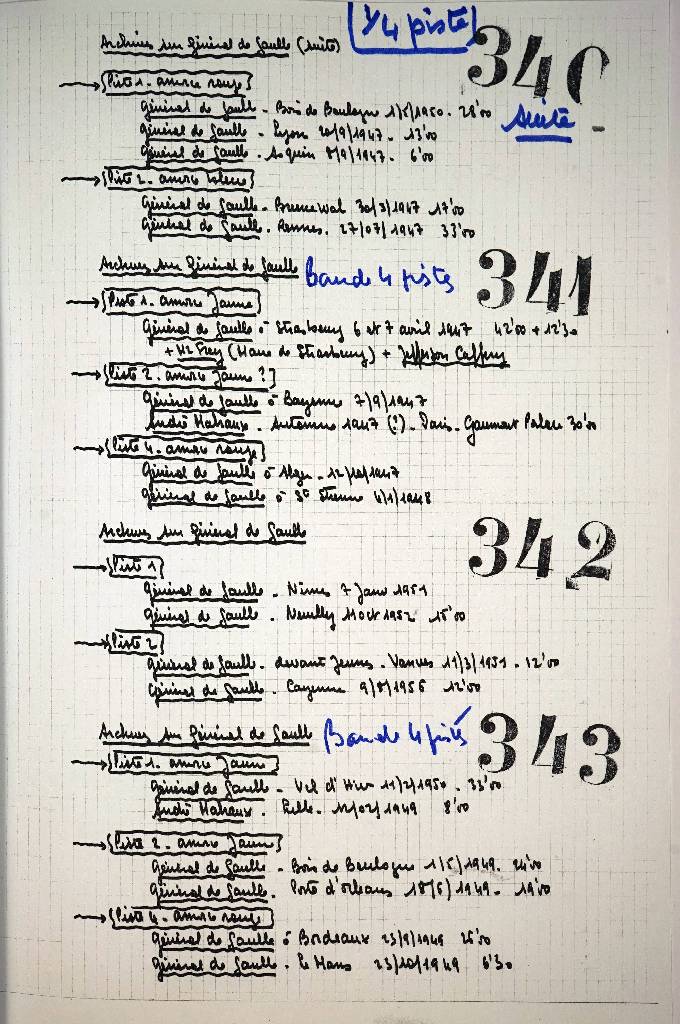 Archives sur Général de Gaulle (suite) [1/4 piste] 340 suite
→ [Piste 1. amorce rouge]
Général de Gaulle - Bois de Boulogne 1/5/1950 - 28'00
Général de Gaulle - Lyon 20/9/1947 - 13'00
Général de Gaulle - 8/9/1947 - 6'00
→ [Piste 2 - amorce bleue]
Général de Gaulle - Bruneval 30/3/1947 17'00
Général de Gaulle. Rennes. 27/07/1947 33'00
Archives sur Général de Gaulle Bande 4 pistes 341
→ [Piste 1 - amorce Jaune]
Général de Gaulle à Strasbourg 6 et 7 avril 1947 42'00 + 12'30
+ Mr Frey (Maire de Strasbourg) + Jefferson Caffery
→ [Piste 2 - amorce Jaune ?]
Général de Gaulle à Bayonne 7/9/1947
André Malraux - Automne 1947 (?) - Paris - Gaumont Palace 30'00
→ [Piste 4 - amorce rouge]
Général de Gaulle à Alger - 12/10/1947
Général de Gaulle à St Etienne 4/1/1948
Archives sur Général de Gaulle 342
→ [Piste 1]
Général de Gaulle - Nimes 7 Janv 1951
Général de Gaulle - Neuilly 11 oct 1952 15'00
→ [Piste 2]
Général de Gaulle - devant Jeunes - Vanves 11/3/1951 - 12'00
Général de Gaulle - Cayenne 9/8/1956 12'00
Archives sur Général de Gaulle Bande 4 pistes 343
→ [Piste 1. amorce Jaune]
Général de Gaulle - Vel d'Hiv 11/2/1950 - 33'00
André Malraux - Lille - 12/02/1949 8'00
→ [Piste 2 - amorce Jaune]
Général de Gaulle - Bois de Boulogne 1/5/1949. 24'00
Général de Gaulle. Porte d'Orléans 18/6/1949 - 19'00
→ [Piste 4 - amorce rouge]
Général de Gaulle à Bordeaux 23/9/1949 25'00
Général de Gaulle - Le Mans 23/10/1949 6'30